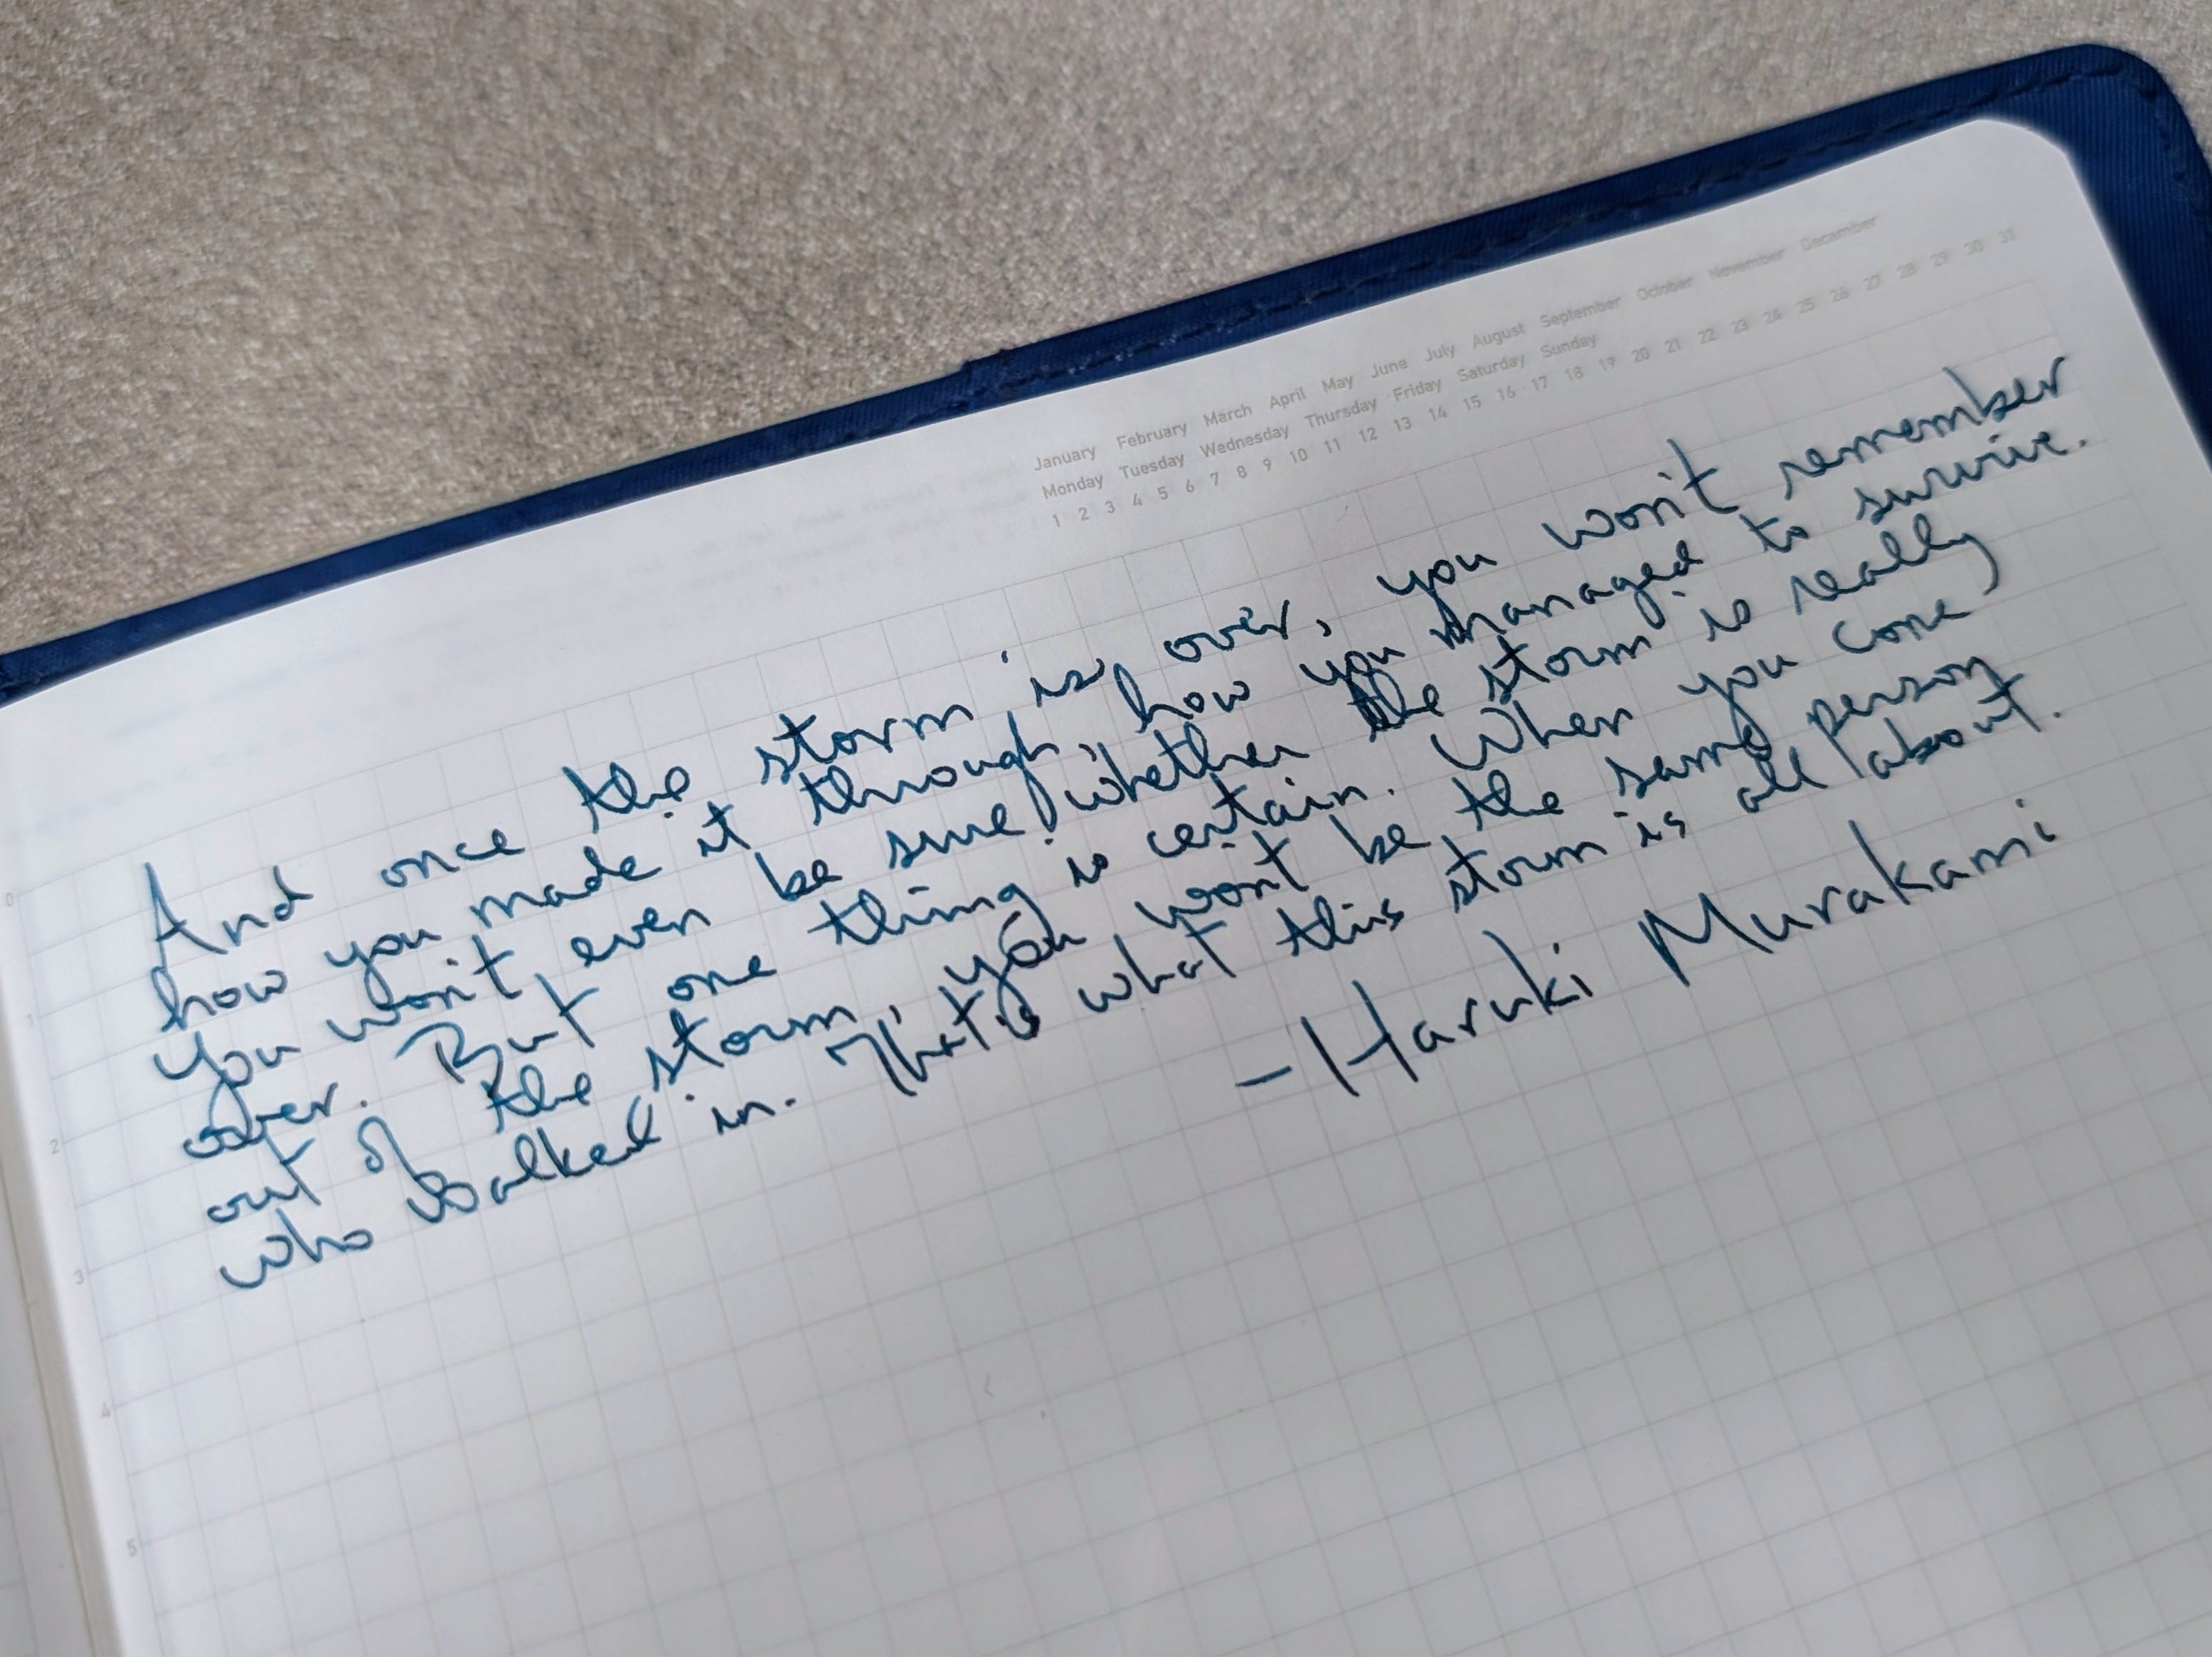 January February March April May June July August September October November December
Monday Tuesday Wednesday Thursday Friday Saturday Sunday
1 2 3 4 5 6 7 8 9 10 11 12 13 14 15 16 17 18 19 20 21 22 23 24 25 26 27 28 29 30 31
And once the storm is over, you won't remember
how you made it through, how you managed to survive.
You won't even be sure, whether the storm is really
over. But one thing is certain. When you come
out of the storm, you won't be the same person
who walked in. That's what this storm is all about.
- Haruki Murakami
0
1
2
3
4
5